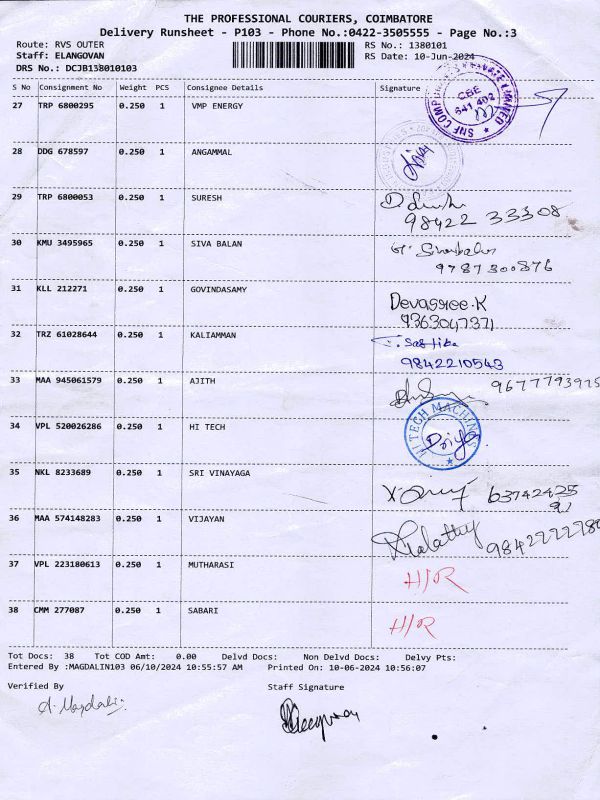 THE PROFESSIONAL COURIERS, COIMBATORE
Delivery Runsheet - P103 - Phone No.:0422-3505555 - Page No.:3
Route: RVS OUTER RS No.: 1380101
Staff: ELANGOVAN RS Date: 10-Jun-2024
DRS No.: DCJB138010103
S No Consignment No Weight PCS Consignee Details Signature
27 TRP 6800295 0.250 1 VMP ENERGY
CBE
641 402
28 DDG 678597 0.250 1 ANGAMMAL
29 TRP 6800053 0.250 1 SURESH
98422 33308
30 KMU 3495965 0.250 1 SIVA BALAN
9787300876
31 KLL 212271 0.250 1 GOVINDASAMY
Devassree.K
9363047371
32 TRZ 61028644 0.250 1 KALIAMMAN
9842210543
33 MAA 945061579 0.250 1 AJITH
34 VPL 520026286 0.250 1 HI TECH
HI TECH MACHINES
35 NKL 8233689 0.250 1 SRI VINAYAGA
36 MAA 574148283 0.250 1 VIJAYAN
37 VPL 223180613 0.250 1 MUTHARASI
H/R
38 CMM 277087 0.250 1 SABARI
H/R
Tot Docs: 38 Tot COD Amt: 0.00 Delvd Docs: Non Delvd Docs: Delvy Pts:
Entered By :MAGDALIN103 06/10/2024 10:55:57 AM Printed On: 10-06-2024 10:56:07
Verified By Staff Signature